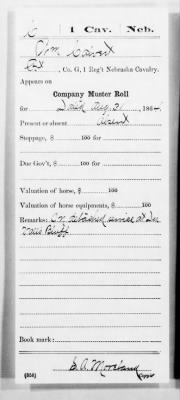 C | 1 Cav. | Neb.
Wm Calvert
Pvt., Co. G, 1 Reg't Nebraska Cavalry.
Appears on
Company Muster Roll
for Aug. 31, 1864.
Present or absent Absent
Stoppage, $ 100 for
Due Gov't, $ 100 for
Valuation of horse, $ 100
Valuation of horse equipments, $ 100
Remarks: On detached service at
Bluff
Book mark:
(358) Copyist.